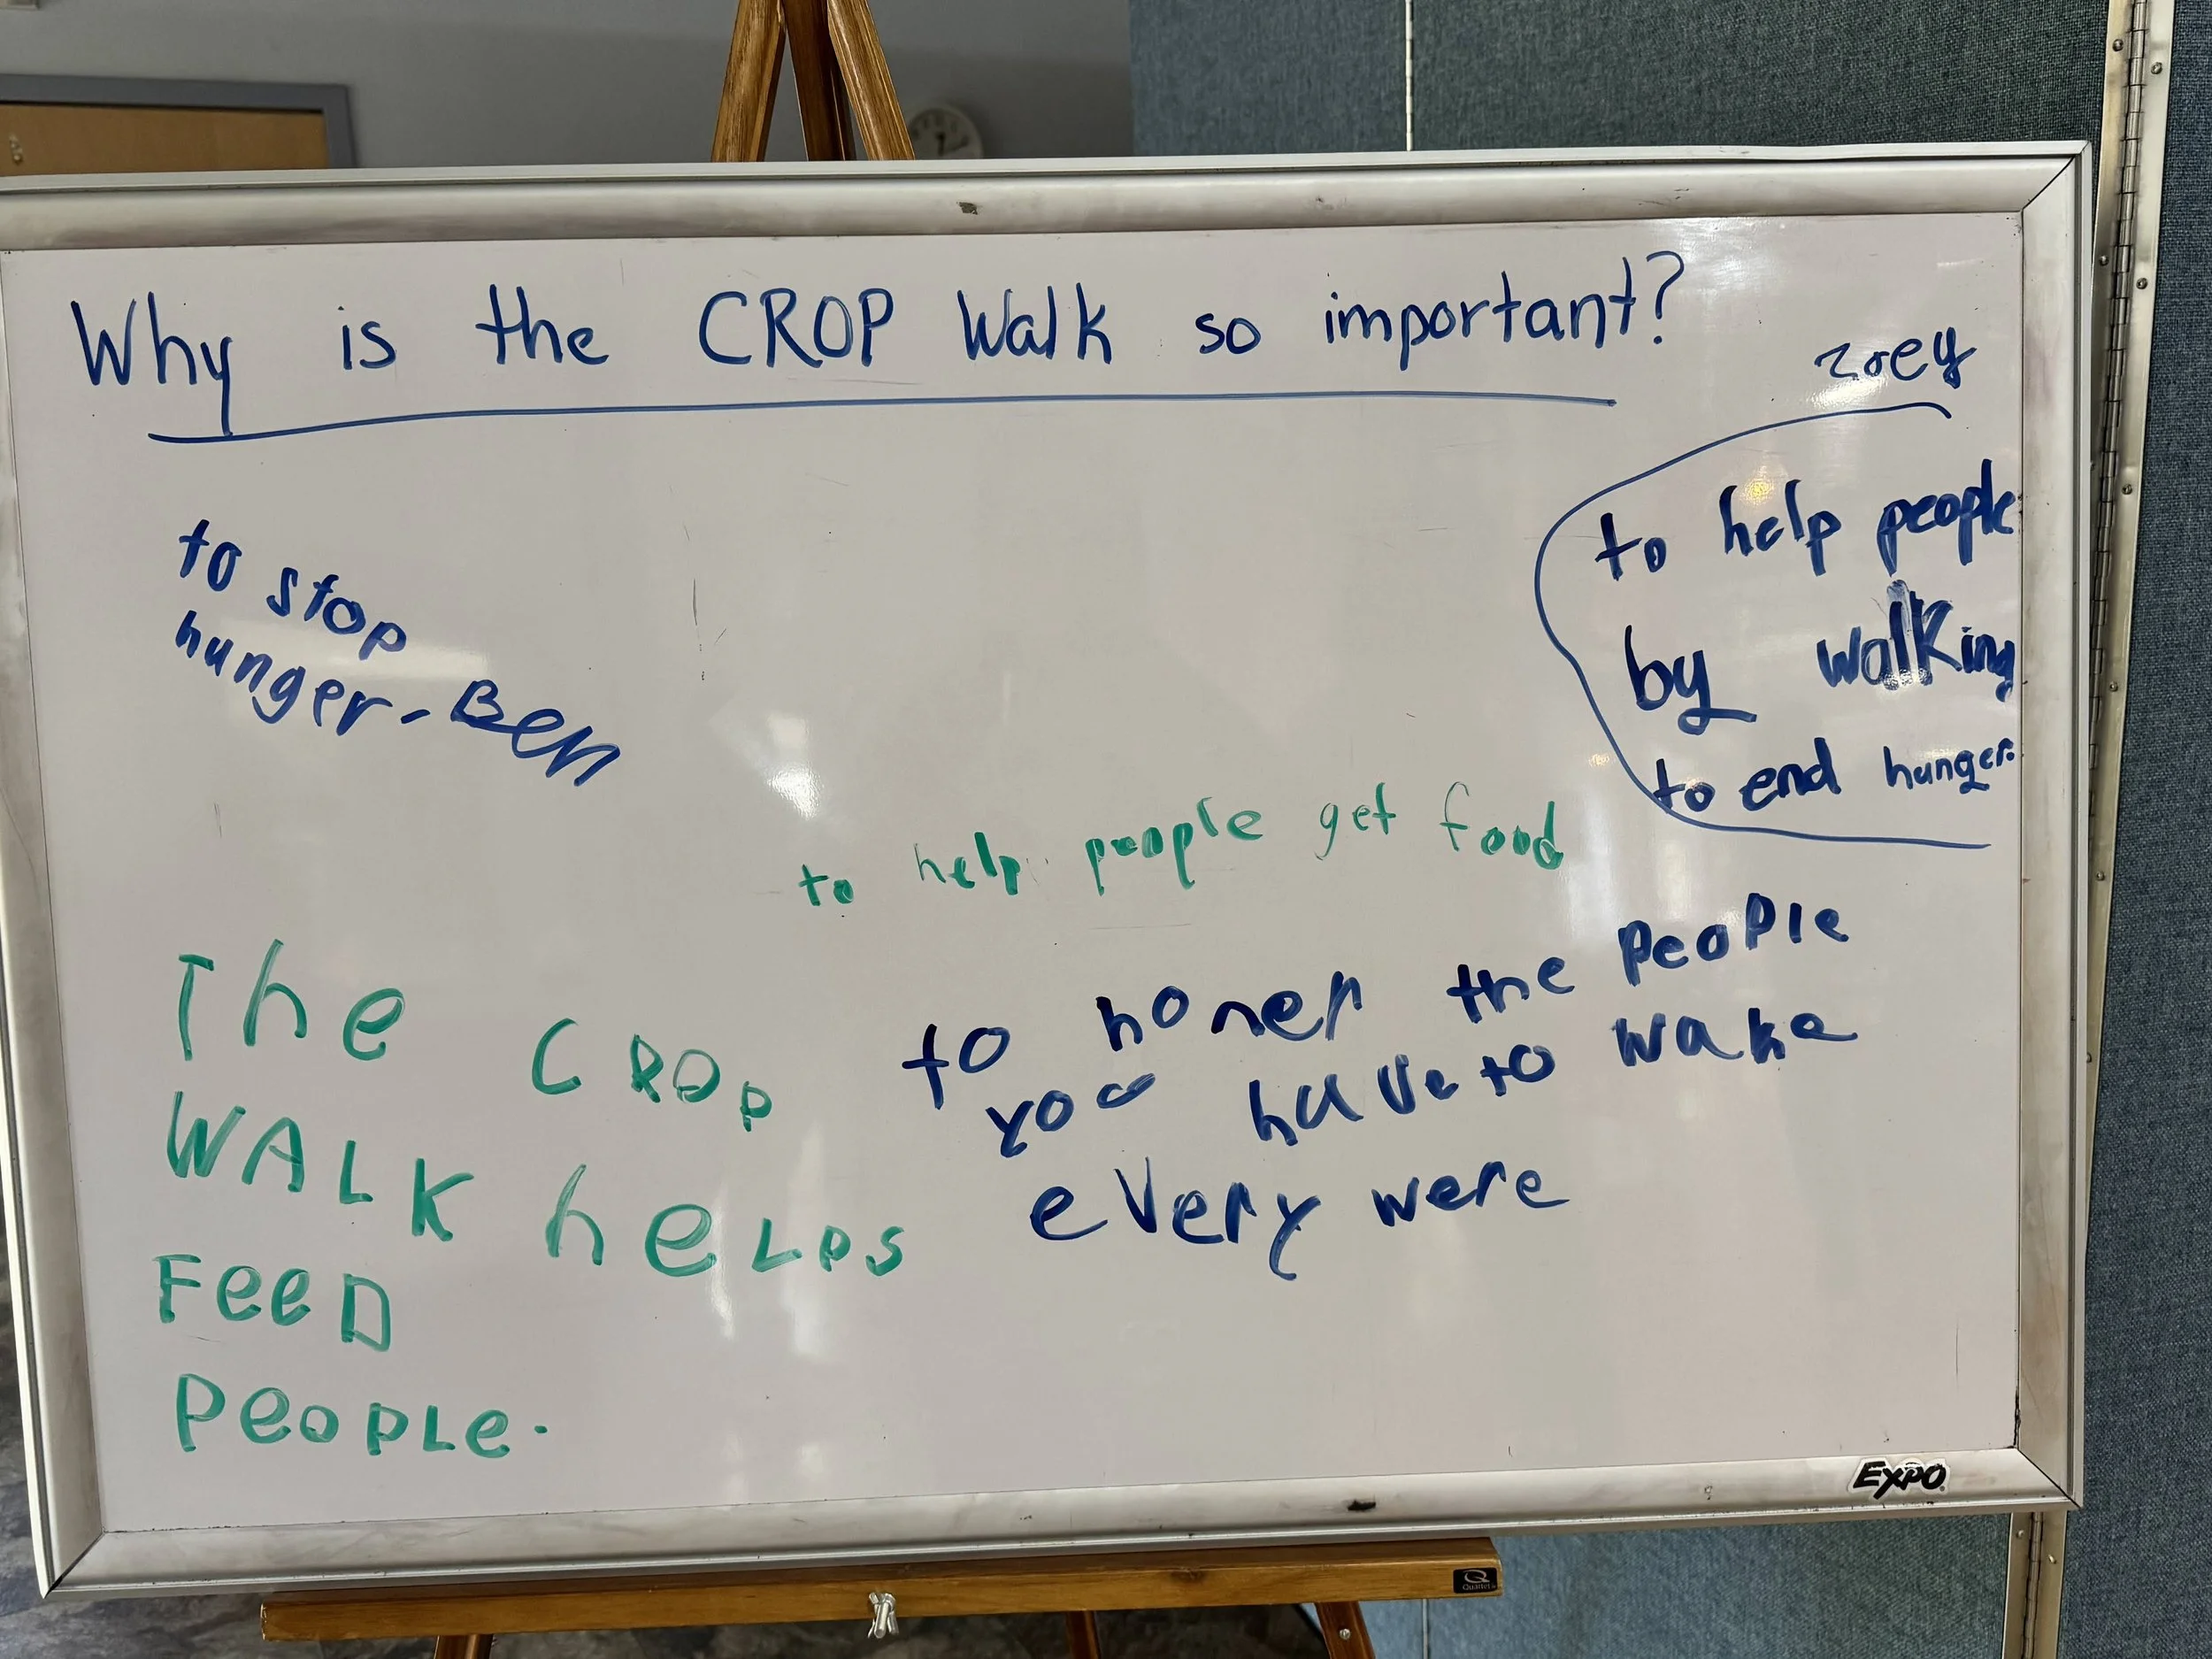 Why is the CROP Walk so important?
zoey
to stop
hunger - Ben
to help people
by walking
to end hunger.
to help people get food
The CROP
WALK heLPS
FeeD
PeoPLe.
to honer the PeoPle
yoo have to wake
every were
EXPO
Quartet